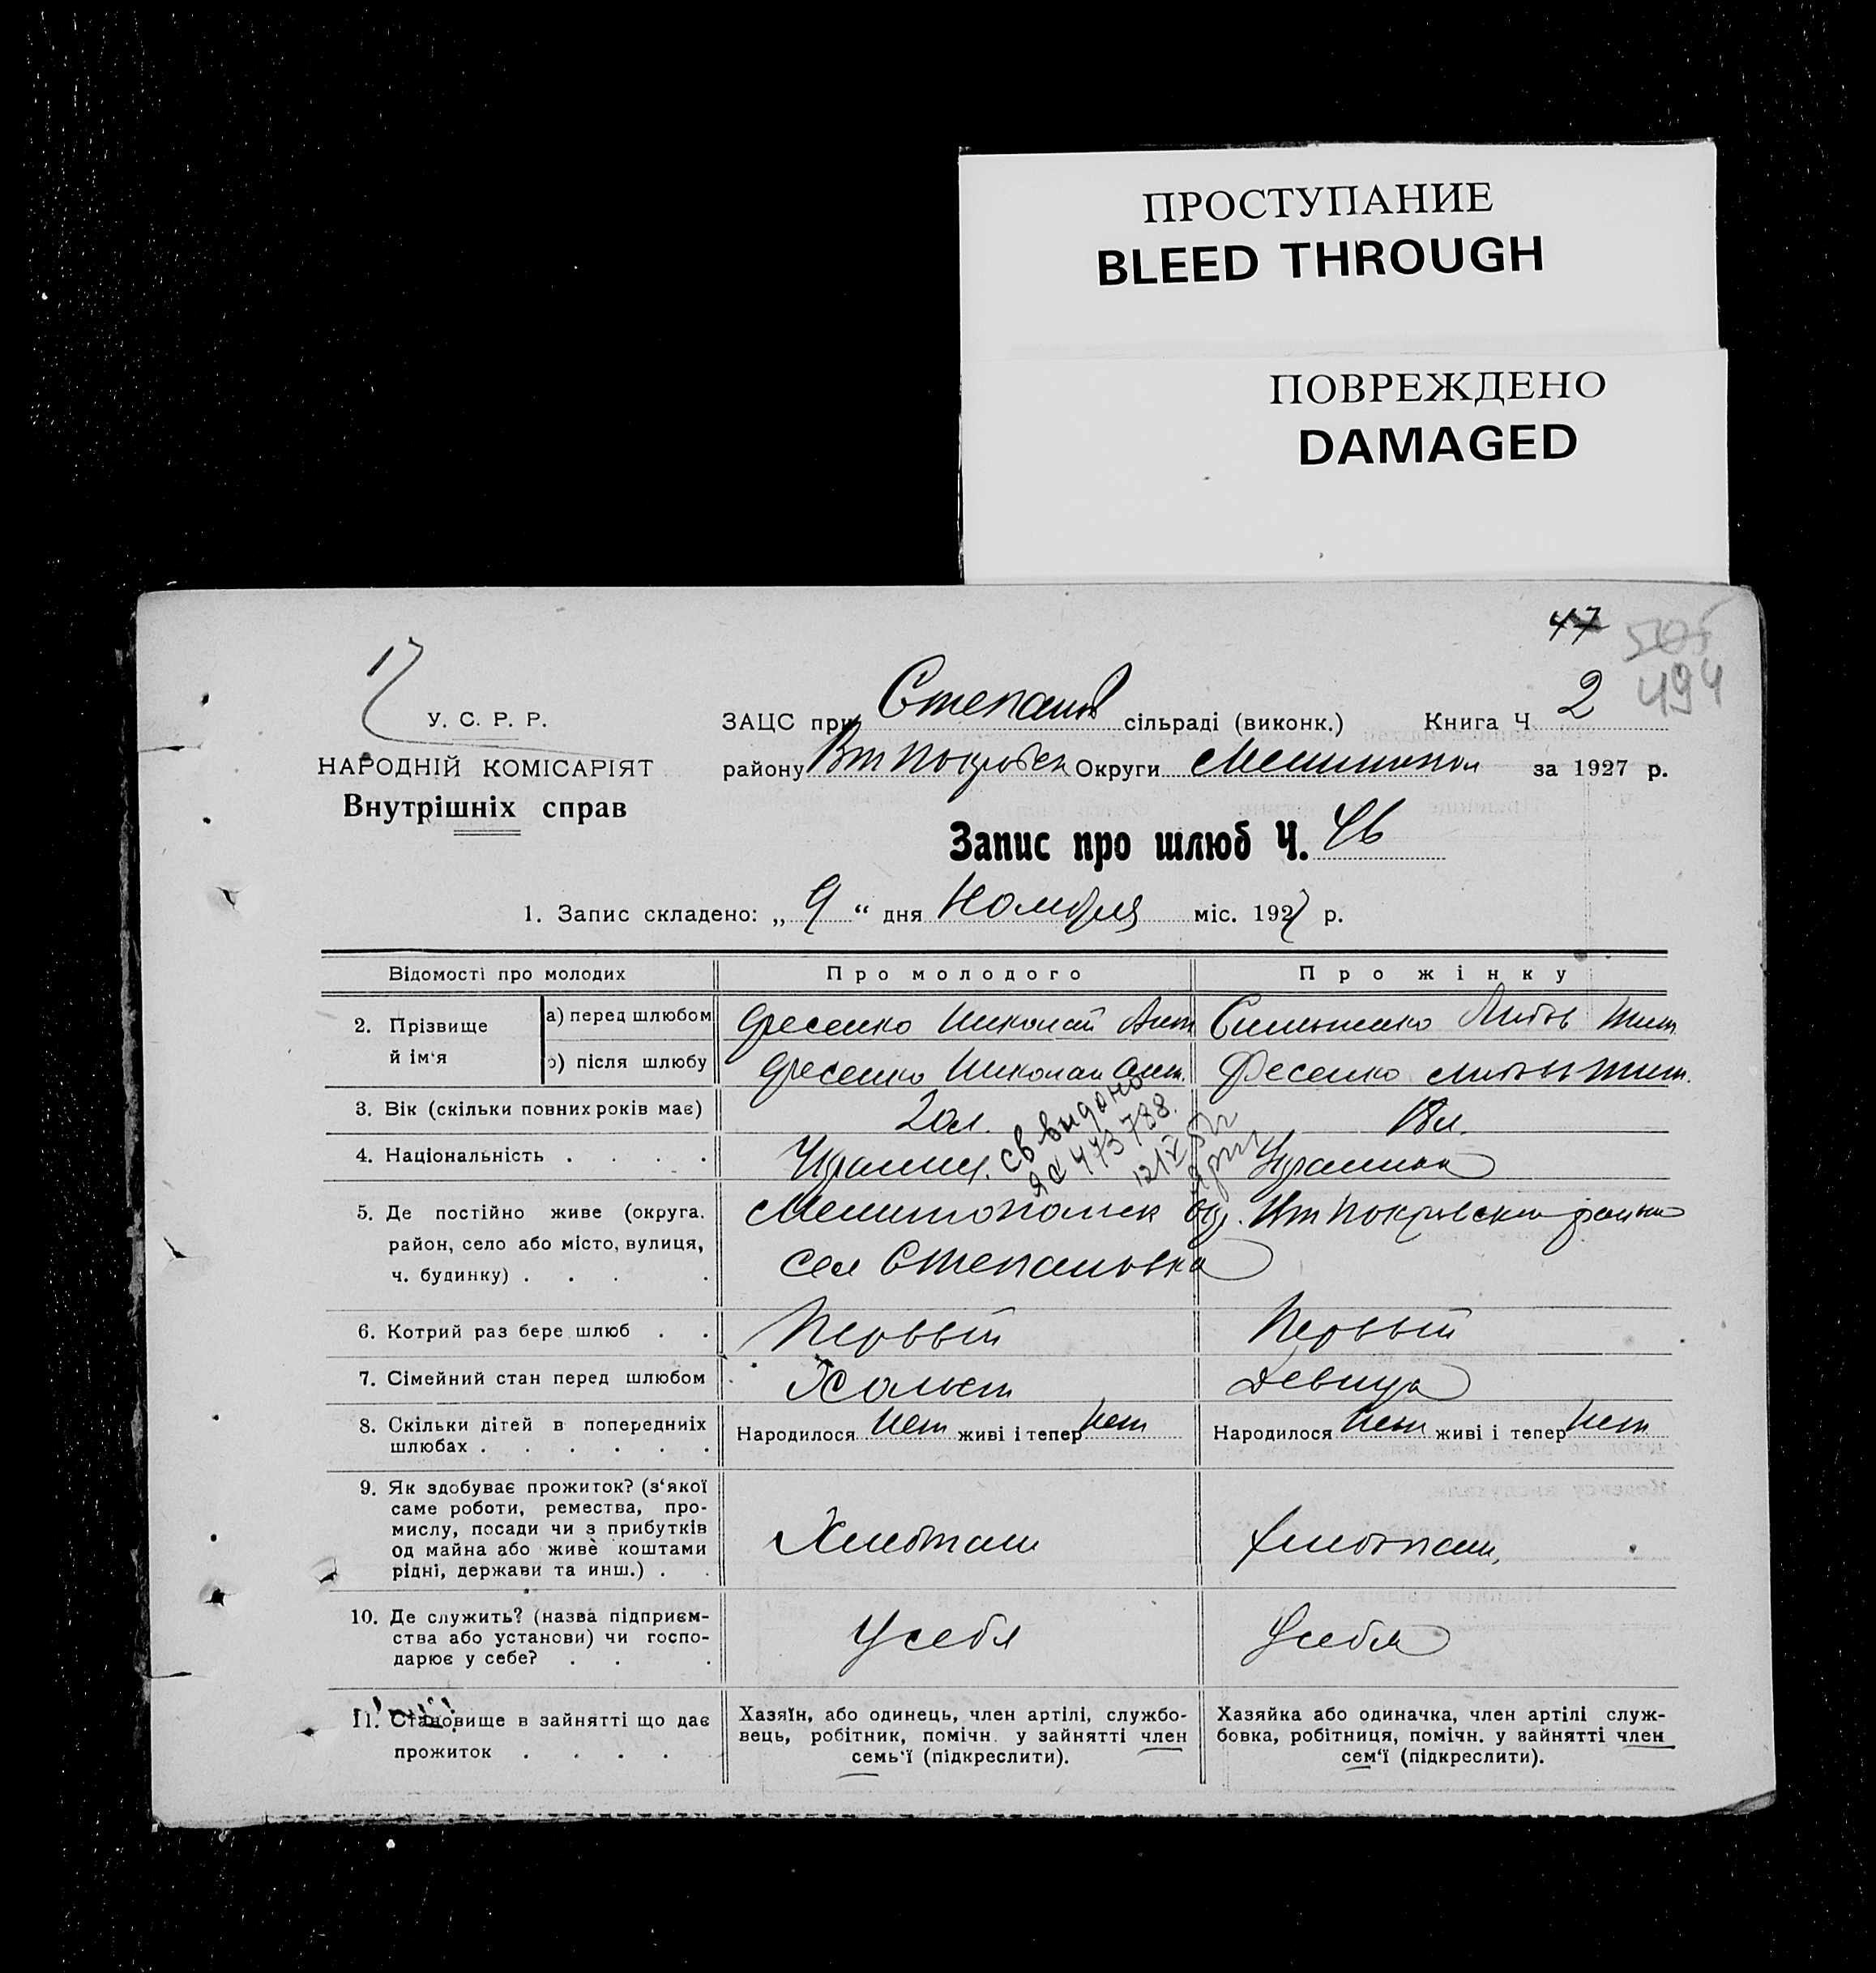 ПРОСТУПАНИЕ
BLEED THROUGH
ПОВРЕЖДЕНО
DAMAGED
47
505
494
17
У. С. Р. Р.
НАРОДНІЙ КОМІСАРІЯТ
Внутрішніх справ
ЗАЦС при Степанов сільраді (виконк.) Книга Ч 2
району Вт Покровск Округи Мелитопол за 1927 р.
Запис про шлюб Ч. 46
1. Запис складено: „ 9 “ дня Ноября міс. 1927 р.
Відомості про молодих Про молодого Про жінку
2. Прізвище й ім‘я
а) перед шлюбом Фесенко Николай Ант Любов Тит.
б) після шлюбу Фесенко Николай Ант. Фесенко Любов Тит.
3. Вік (скільки повних років має) 20 л. 18 л.
4. Національність . . . . Украинец. Украинка
Св выдано
ЯС 473788.
5. Де постійно живе (округа. Мелитопольск окр. Вт Покровский район
район, село або місто, вулиця, сел Степановка
ч. будинку) . . . .
6. Котрий раз бере шлюб . . Первый Первый
7. Сімейний стан перед шлюбом Холост Девица
8. Скільки дітей в попередниіх Народилося Нет живі і тепер Нет Народилося Нет живі і тепер Нет
шлюбах . . . . . .
9. Як здобуває прожиток? (з‘якої
саме роботи, ремества, про-
мислу, посади чи з прибутків Хлебопаш Хлебопаш.
од майна або живе коштами
рідні, держави та инш.) . .
10. Де служить? (назва підприєм-
ства або установи) чи госпо- У себя У себя
дарює у себе? . . .
11. Становище в зайнятті що дає
прожиток . . . .
Хазяїн, або одинець, член артілі, службо-
вець, робітник, помічн. у зайнятті член
семь‘ї (підкреслити).
Хазяйка або одиначка, член артілі служ-
бовка, робітниця, помічн. у зайнятті член
сем‘ї (підкреслити).